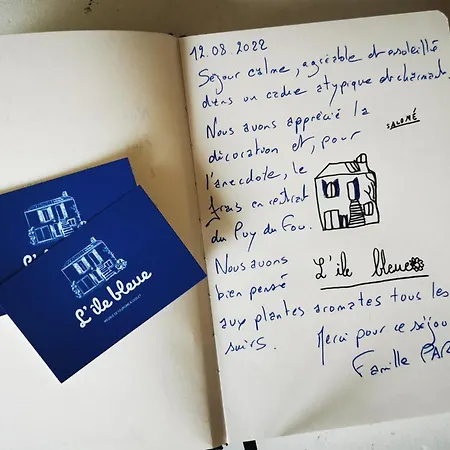 12.08.2022
Séjour calme, agréable et ensoleillé
dans un cadre atypique et charmant.
Nous avons apprécié la
décoration et, pour
l'anecdote, le
frais en rentrant
du Puy du Fou.
SALOMÉ
L'île bleue
Nous avons
bien pensé
aux plantes aromates tous les
soirs.
Merci pour ce séjou
Famille PAR
L'île bleue